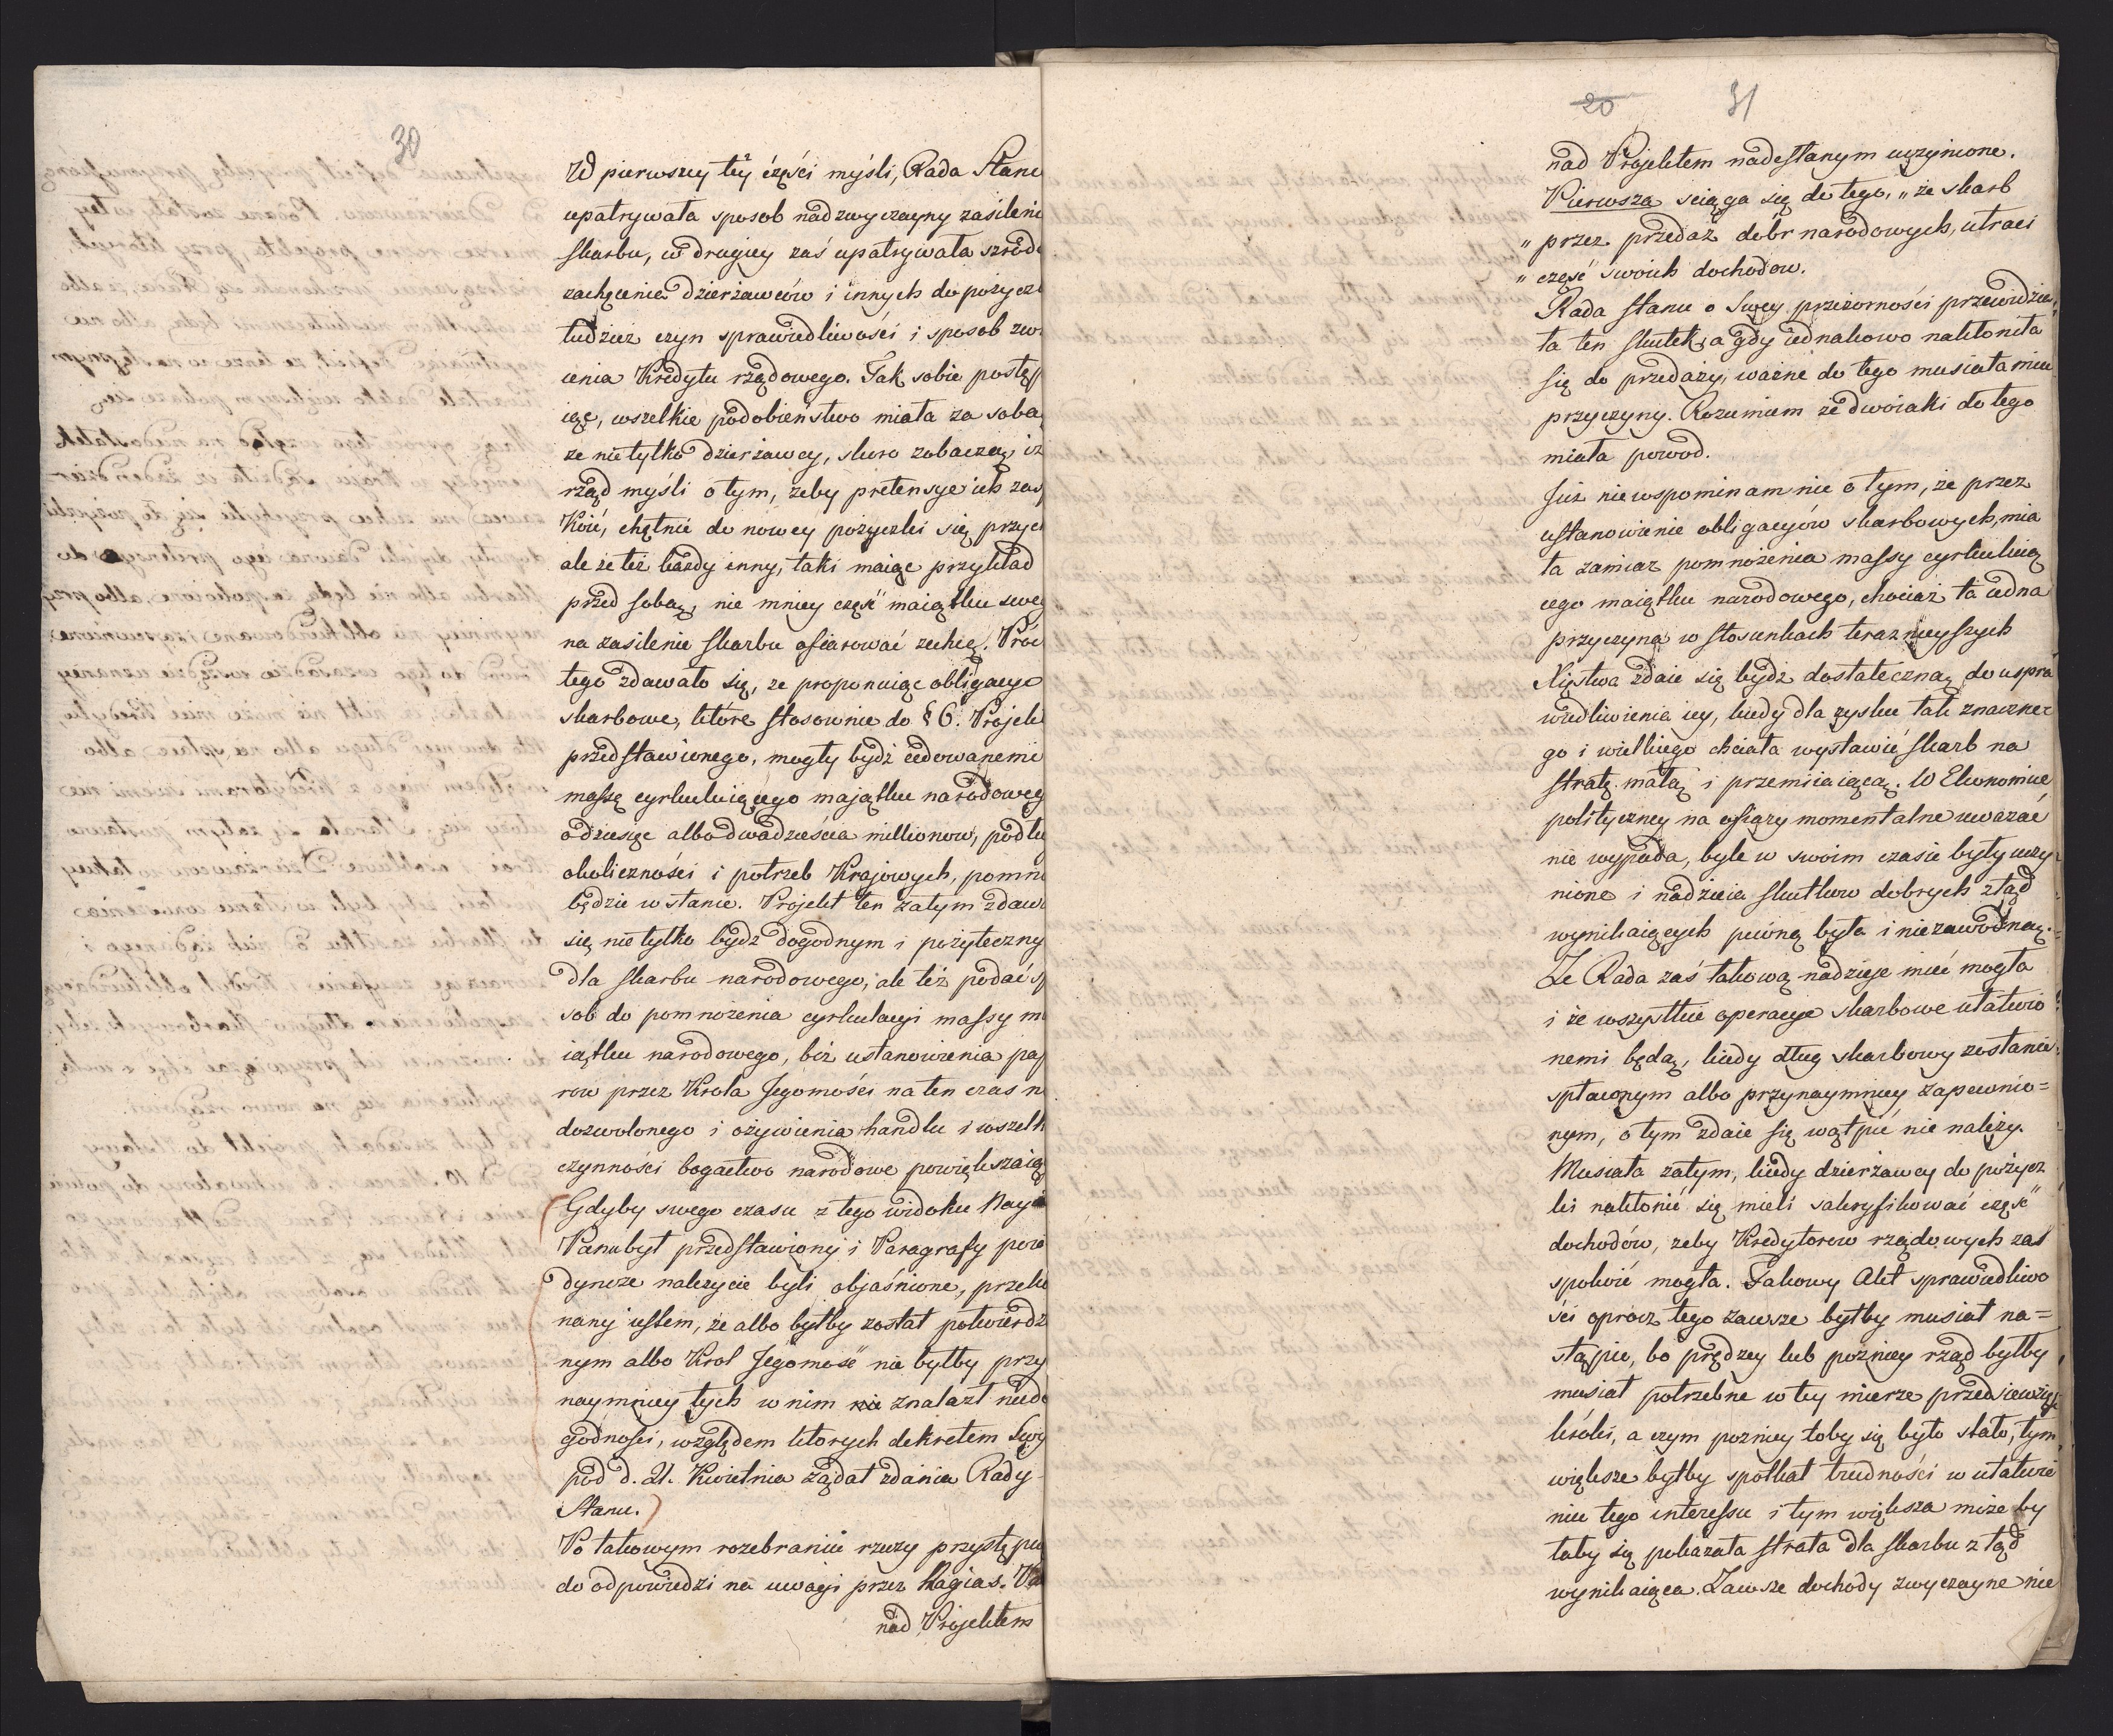 30
W pierwszey tey części myśli, Rada Stanu
upatrywała sposob nadzwyczayny zasileni
skarbu, w drugiey zaś upatrywała szrod
zachęcenia dzierżawców i innych do pożycz
tudzież czyn sprawiedliwości i sposob zw
cenia Kredytu rządowego. Tak sobie postęp
iąc, wszelkie podobieństwo miała za sobą
ze nie tylko dzierżawcy, skoro zobaczą, iż
rząd myśli o tym, zeby pretensye ich zas
koić, chętnie do nowey pożyczki się przyc
ale że też każdy inny, taki maiąc przykład
przed sobą, nie mniey część maiątku sweg
na zasilenie skarbu ofiarować zechce. Proc
tego zdawało się, ze proponuiąc obligacye
skarbowe, które stosownie do § 6. Projek
przedstawionego, mogły bydź cedowanemi
massę cyrkuluiącego majątku narodoweg
o dziesięc albo dwadzieścia millionow, podłu
okoliczności i potrzeb Krajowych, pomn
będzie w stanie. Projekt ten zatym zdaw
się nie tylko bydz dogodnym i pożyteczny
dla skarbu narodowego, ale też podać sp
sob do pomnożenia cyrkulacyi massy m
iątku narodowego, bez ustanowienia pap
row przez Krola Jegomości na ten czas n
dozwolonego i ożywienia handlu i wszelk
czynności bogactwo narodowe powiększaią
Gdyby swego czasu z tego widoku Nayi
Panu był przedstawiony i Paragrafy poie
dyncze należycie byli objaśnione, przeko
nany iestem, że albo byłby został potwierdz
nym albo Krol Jegomość nie byłby przy
naymniey tych w nim nie znalazł niedo
godności, względem ktorych dekretem Swy
pod d. 21. Kwietnia żądał zdania Rady
Stanu.
Po takowym rozebraniu rzeczy przystępu
do odpowiedzi na uwagi przez Nayias. Pa
nad Projektem
20 31
nad Projektem nadesłanym uczynione.
Pierwsza ściąga się do tego, „że skarb
„przez przedaż dobr narodowych, utraci
„część swoich dochodow.
Rada stanu o Swey przezorności przewidzia
ła ten skutek, a gdy iednakowo nakłoniła
się do przedaży, ważne do tego musiała mieć
przyczyny. Rozumiem że dwoiaki do tego
miała powod.
Już nie wspominam nic o tym, że przez
ustanowienie obligacyów skarbowych, mia
ła zamiar pomnożenia massy cyrkuluią
cego maiątku narodowego, chociaż ta iedna
przyczyna w stosunkach teraznieyszych
Xięstwa zdaie się bydź dostateczną do uspra
wiedliwienia iey, kiedy dla zysku tak znaczne-
go i wielkiego chciała wystawić skarb na
stratę małą i przemiiaiącą. W Ekonomice
polityczney na ofiary momentalne uważać
nie wypada, byle w swoim czasie były uczy
nione i nadzieia skutkow dobrych ztąd
wynikaiących pewną była i niezawodną.
Że Rada zaś takową nadzieje mieć mogła
i że wszystkie operacye skarbowe ułatwio
nemi będą, kiedy dług skarbowy zostanie
spłaconym albo przynaymniey zapewnio=
nym, o tym zdaie się wątpić nie należy.
Musiała zatym, kiedy dzierżawcy do pożycz
ki nakłonić się mieli sakryfikować część
dochodów, zeby Kredytorow rządowych zas
spokoić mogła. Takowy Akt sprawiedliwo
ści oprocz tego zawsze byłby musiał na=
stąpić, bo prędzey lub pozniey rząd byłby
musiał potrzebne w tey mierze przedsiewziąść
króki, a czym pozniey toby się było stało, tym
większe byłby spotkał trudności w ułatwie
niu tego interessu i tym większa może by
łaby się pokazała strata dla skarbu ztąd
wynikaiąca. Zawsze dochody zwyczayne nie